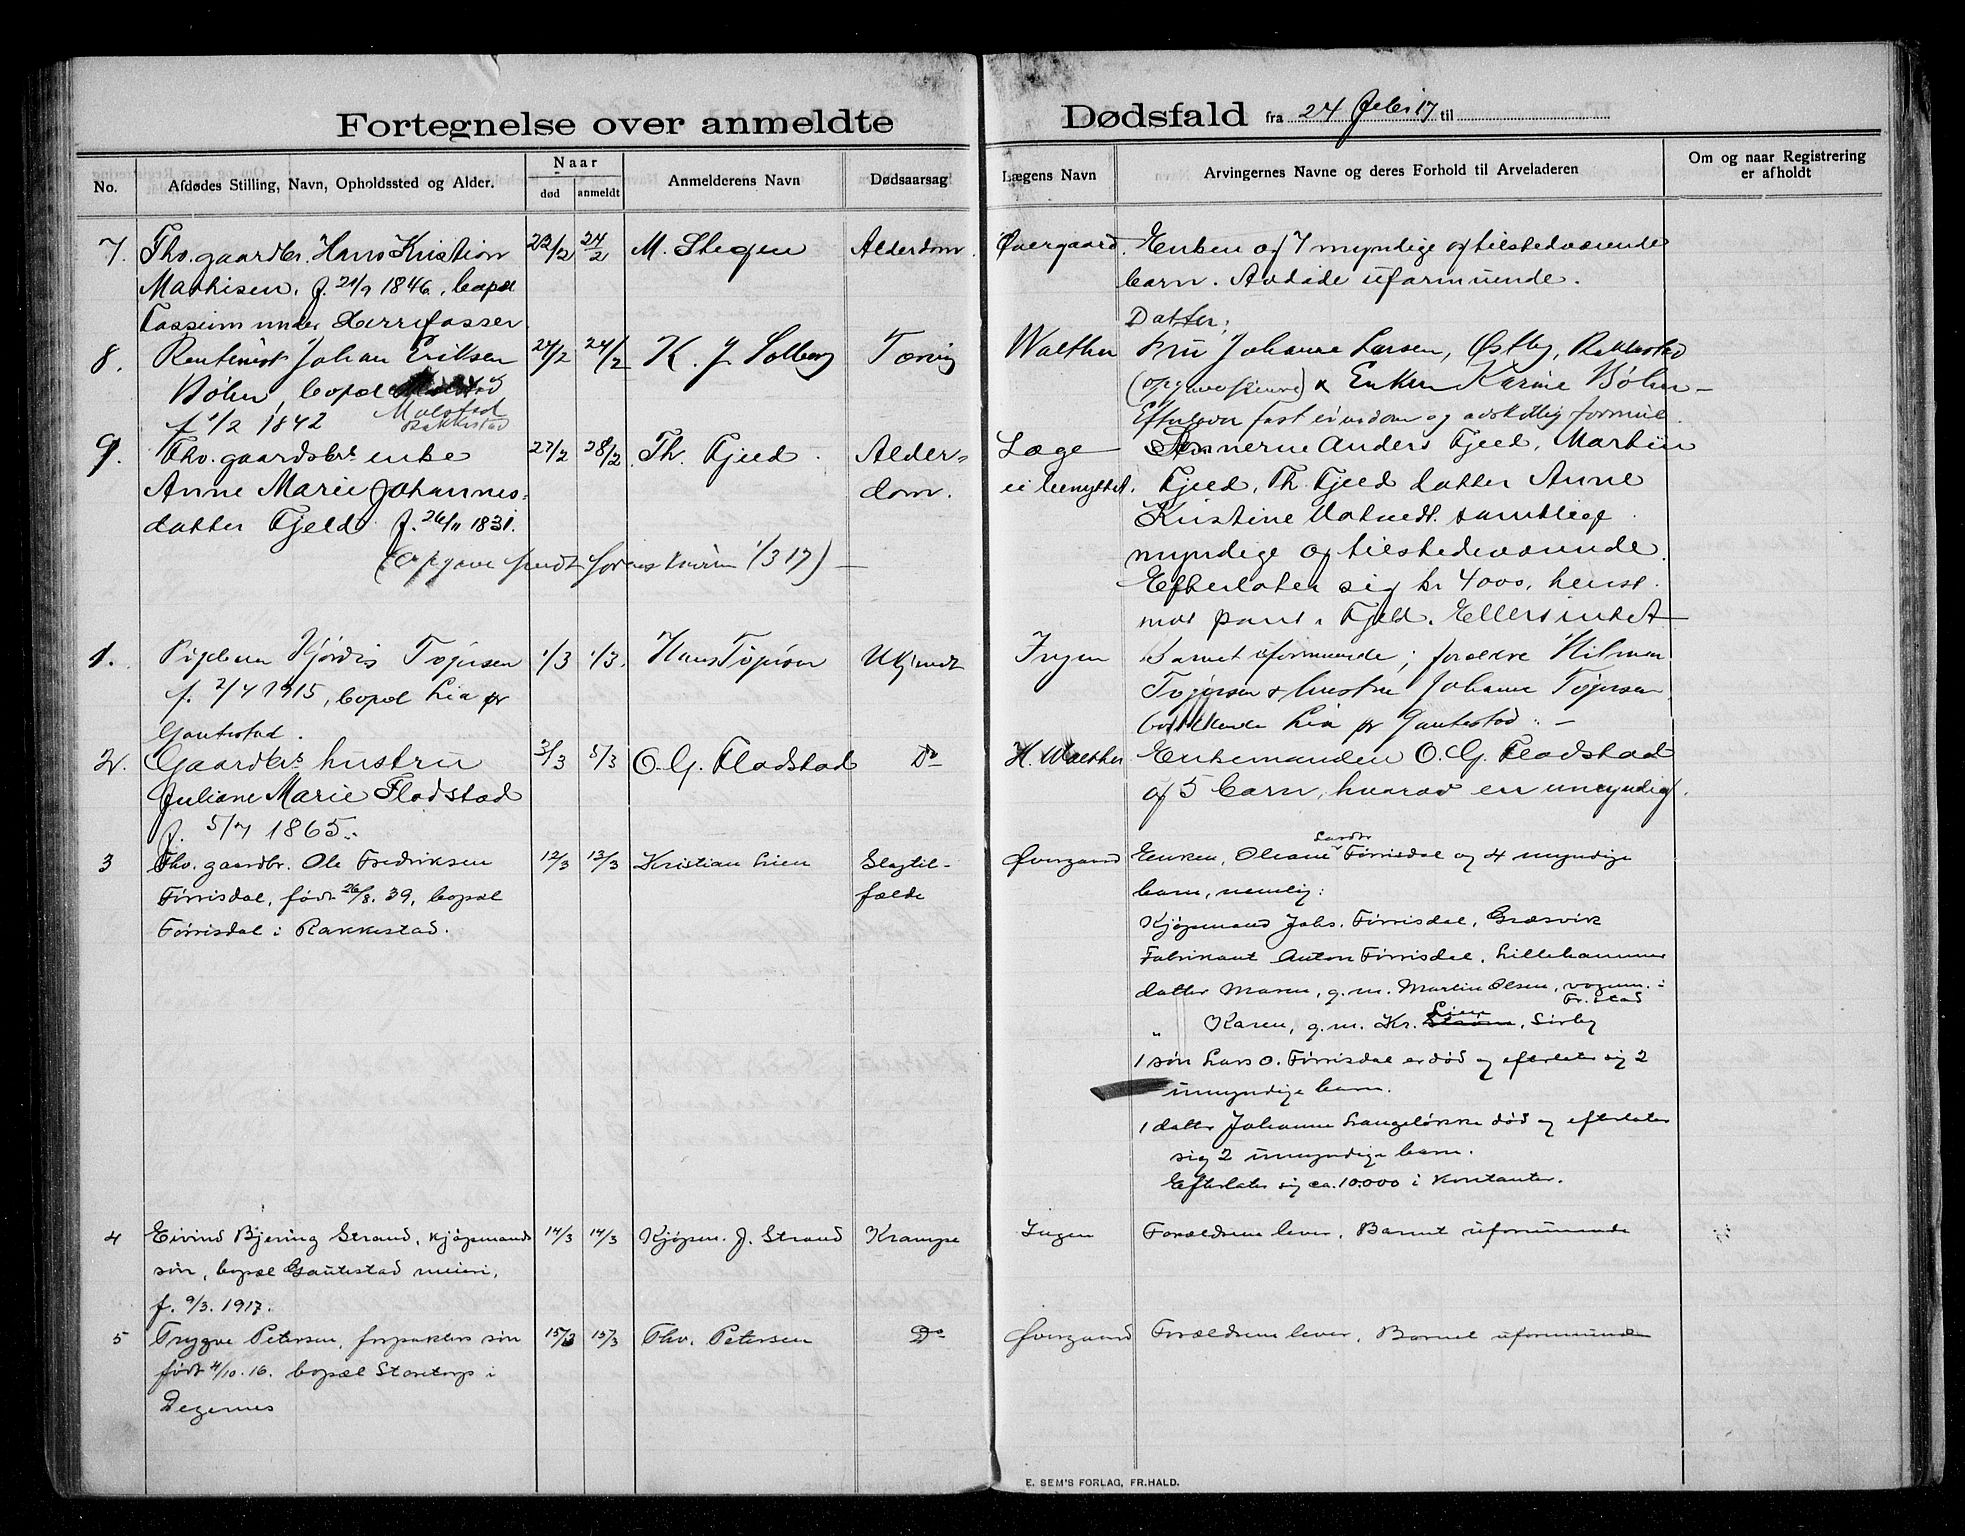 Fortegnelse over anmeldte Dødsfald fra 24 Febr 17 til
No.
Afdødes Stilling, Navn, Opholdssted og Alder.
Naar
død
anmeldt
Anmelderens Navn
Dødsaarsag
Lægens Navn
Arvingernes Navne og deres Forhold til Arveladeren
Om og naar Registrering
er afholdt
7. Fhv. gaardbr. Hans Kristian 22/2 24/2 M. Skegen Alderdom. Øvergaard. Enken og 7 myndige og tilstedeværende
Mathisen, f. 1846, bopæl
barn. Avdøde uformuende.
under
Datter:
8. Rentenist Johan Eriksen 24/2 24/2 K. J. Solberg Tæring Walther Fru Johanne Larsen, Østby, Rakkestad
Bøhn, bopæl
& Enken Karine Bøhn
f 1/2 1842 Molstad
Rakkestad
Efterlever fast eiendom og
9. Fhv. gaardsbrs enke 27/2 28/2 Th. Fjeld Alder= Læge Sønnerne Anders Fjeld, Martin
Anne Marie Johannes= dom. ei benyttet. Fjeld, Th. Fjeld datter Anne
datter Fjeld. f. 26/11 1831.
Kristine samtlige
(Opgave sendt 1/3 17)
myndige og tilstedeværende.
Efterlater sig kr 4000,
mot pant i Fjeld. Ellers intet
1. Pigebarn Hjørdis 1/3 1/3. Hans Ukjendt Ingen Barnet uformuende; forældre Hilmar
f. 2/4 1915, bopæl Lia pr
& hustru Johanne
Gautestad.
Lia pr Gautestad.
2. Gaardbrs hustru 3/3 5/3 O. G. Flodstad Do H. Walther Enkemanden O. G. Flodstad
Juliane Marie Flodstad
og 5 barn, hvorav en umyndig.
f. 5/7 1865.
3 Fhv. gaardbr. Ole Fredriksen 12/3 13/3 Kristian Lien Slagtil- Øvergaard Enken, Oleane Larsdtr Førrisdal og 4 myndige
Førrisdal, født 26/8. 39, bopæl fælde barn, nemlig:
Førrisdal i Rakkestad.
Kjøpmand Johs. Førrisdal, Græsvik
Fabrikant Anton Førrisdal, Lillehammer
datter Maren, g.m. Martin Olsen, vognm. i
Fr.stad
" Karen, g.m. Kr. Lien, Sirby
1 søn Lars O. Førrisdal er død og efterlater sig 2
umyndige barn.
1 datter Johanne Langeløkke død og efterlater
sig 2 umyndige barn.
Efterlater sig ca. 10.000 i kontanter.
4 Eivind Bjering Strand, kjøpmands 14/3 14/3 Kjøpm. J. Strand Krampe Ingen Forældrene lever, Barnet uformuende
søn, bopæl Gautestad meieri,
f. 9/3. 1917.
5 Trygve Petersen, forpakters søn 15/3 15/3 Thv. Petersen Do Øvergaard Forældrene lever, Barnet uformuende
født 4/10. 16. bopæl Storetorp i
Degernes
E. SEM'S FORLAG, FR.HALD.